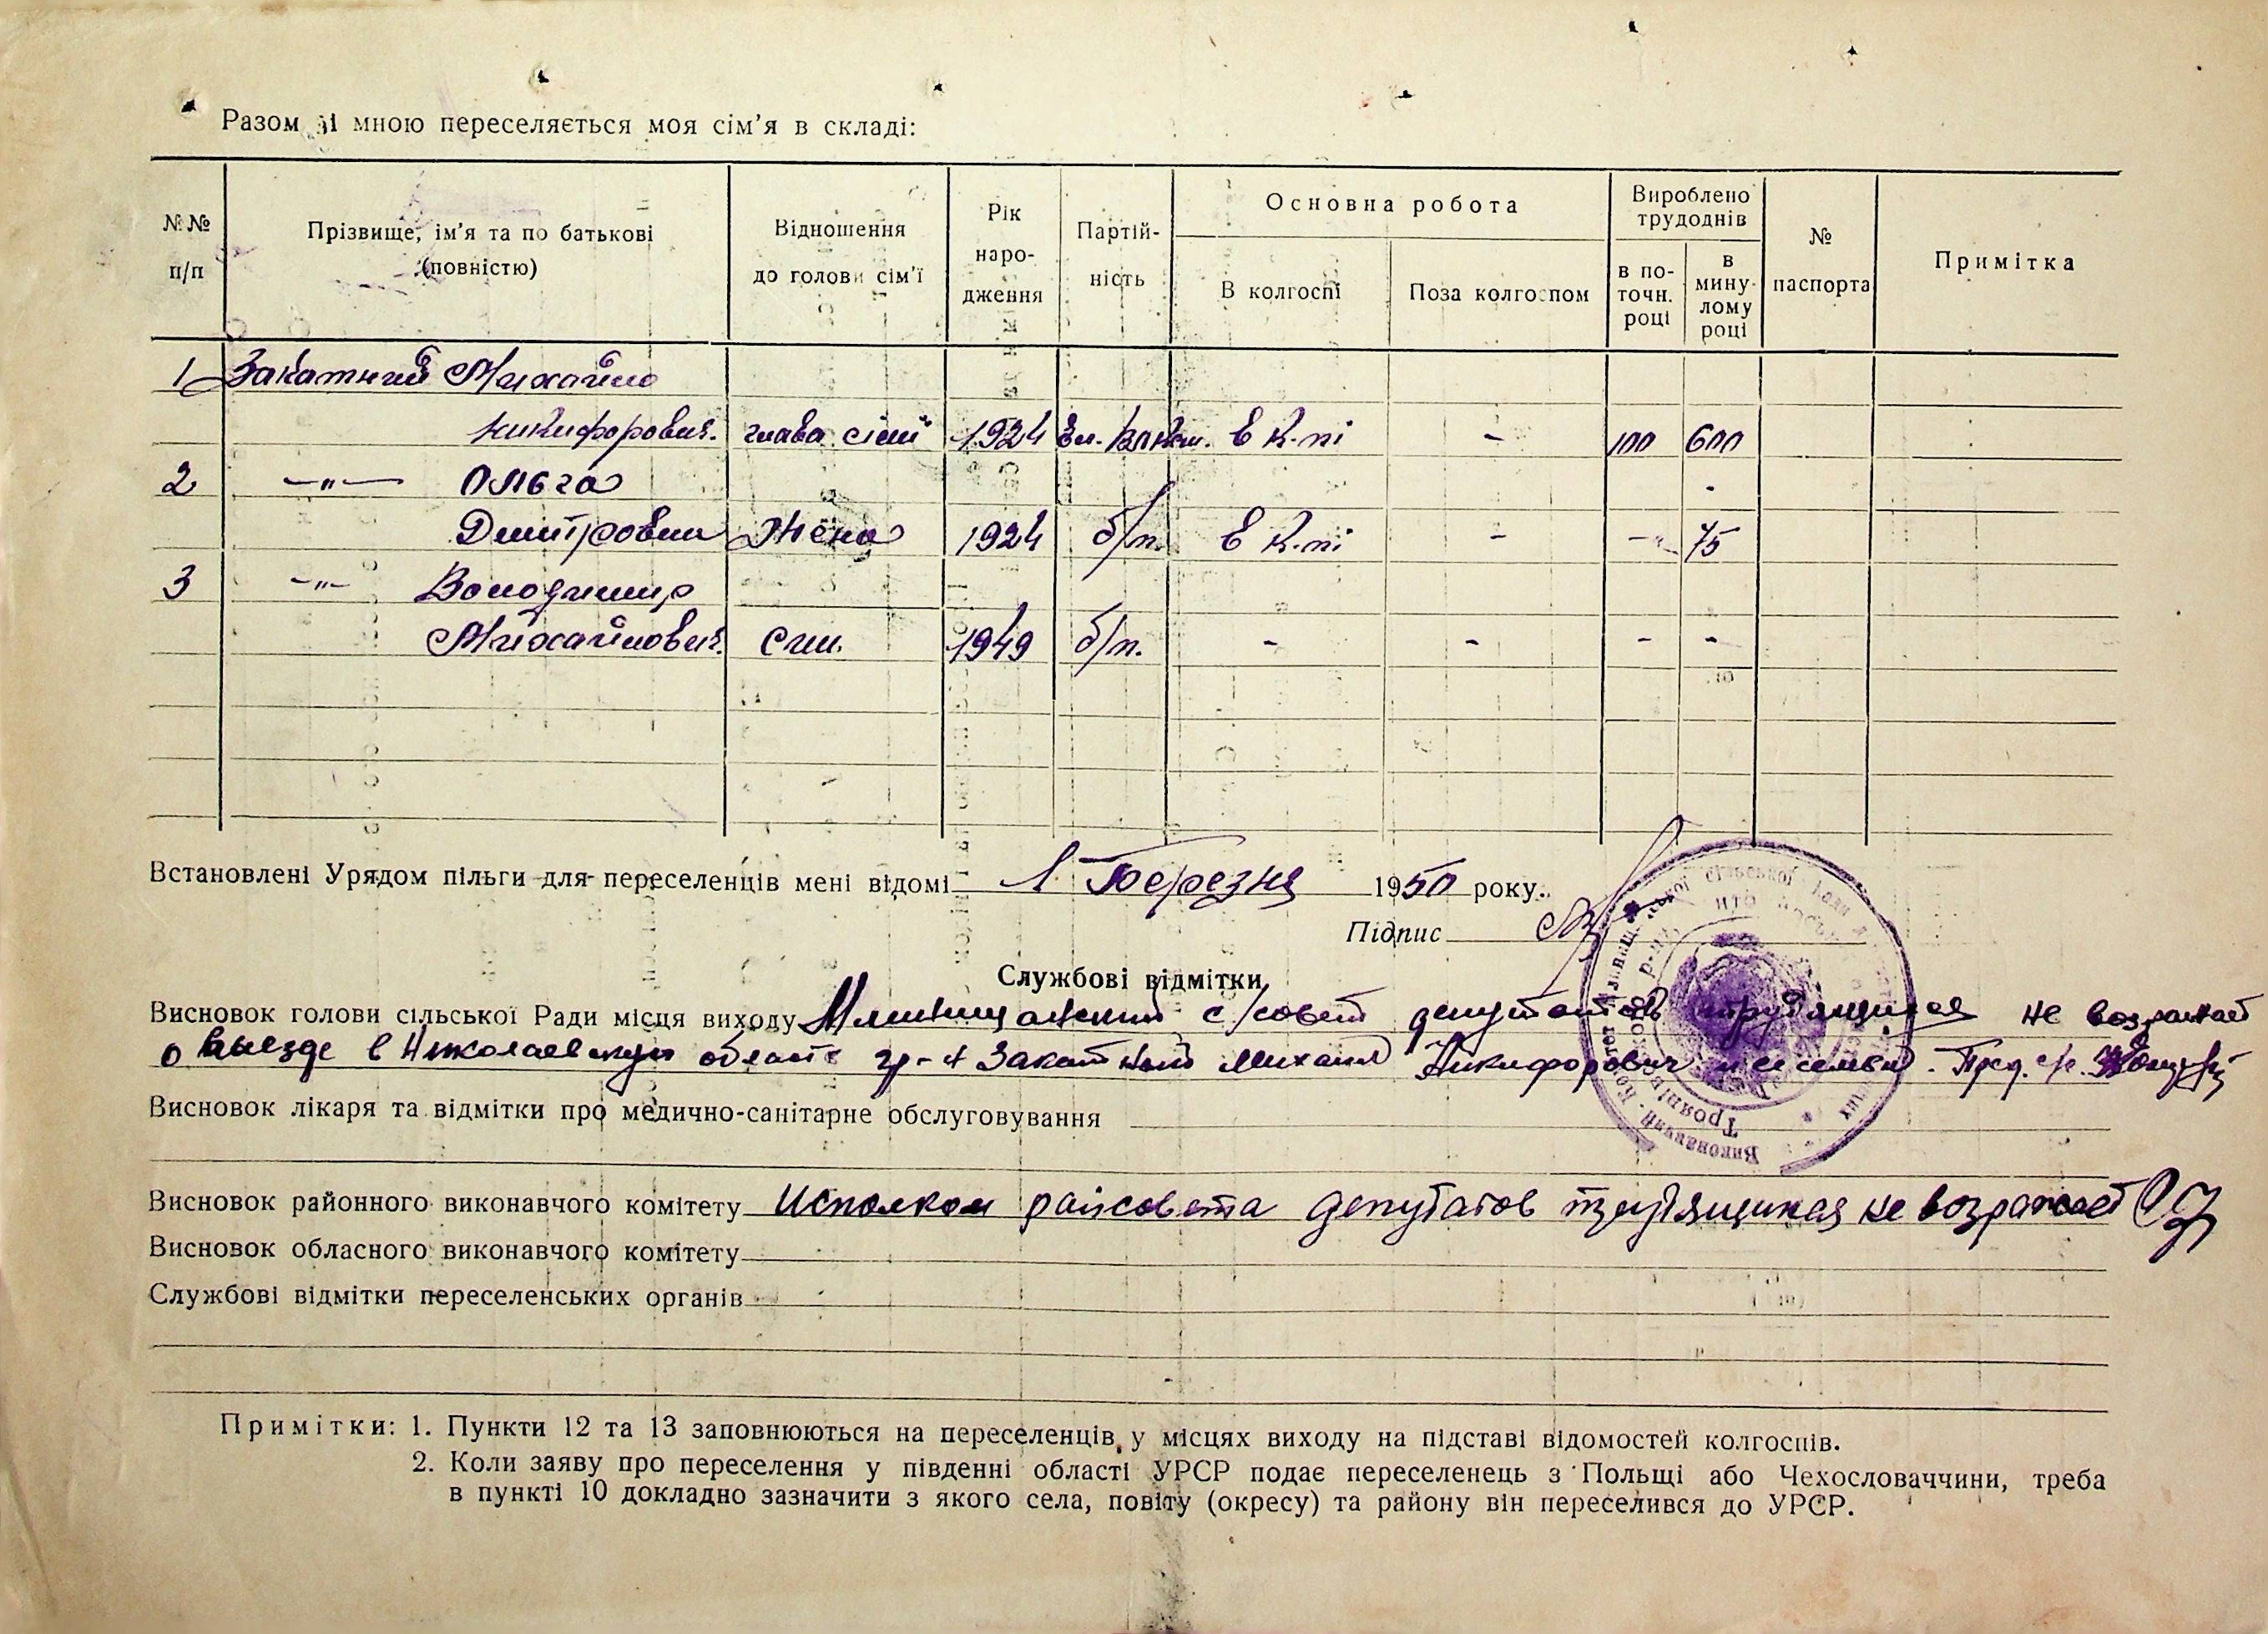 Разом зі мною переселяється моя сім'я в складі:
№№ п/п
Прізвище, ім'я та по батькові (повністю)
Відношення до голови сім'ї
Рік наро-дження
Партій-ність
Основна робота
В колгоспі
Поза колгоспом
Вироблено трудоднів
в по-точн. році
в мину-лому році
№ паспорта
Примітка
1 Закатний Михайло
Никифорович. глава сімї 1924 в к-пі - 100 600
2 —"— Ольга
Дмитровна Жена 1924 б/п. в к-пі - -"- 75
3 -"- Володимир
Михайлович. Син. 1949 б/п. - - - -
Встановлені Урядом пільги для переселенців мені відомі 1 Березня 1950 року.
Підпис
Службові відмітки
Висновок голови сільської Ради місця виходу с/совет депутатов трудящихся не возражает
о выезде в Николаевскую область гр-н Закатный Михаил Никифорович и ее семьи. Пред. с/с.
Висновок лікаря та відмітки про медично-санітарне обслуговування
Висновок районного виконавчого комітету Исполком райсовета депутатов трудящихся не возражает
Висновок обласного виконавчого комітету
Службові відмітки переселенських органів
Примітки: 1. Пункти 12 та 13 заповнюються на переселенців у місцях виходу на підставі відомостей колгоспів.
2. Коли заяву про переселення у південні області УРСР подає переселенець з Польщі або Чехословаччини, треба
в пункті 10 докладно зазначити з якого села, повіту (окресу) та району він переселився до УРСР.